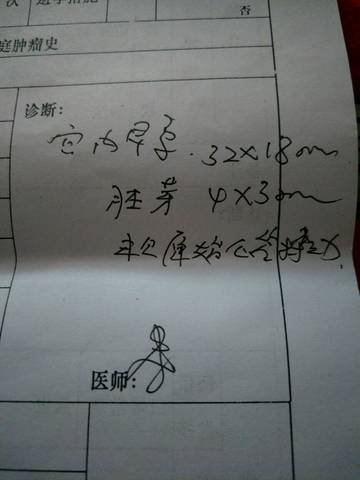 次
否
庭肿瘤史
诊断:
宫内早孕. 32×18mm
胚芽 4×3mm
未见原始心管搏动
医师: